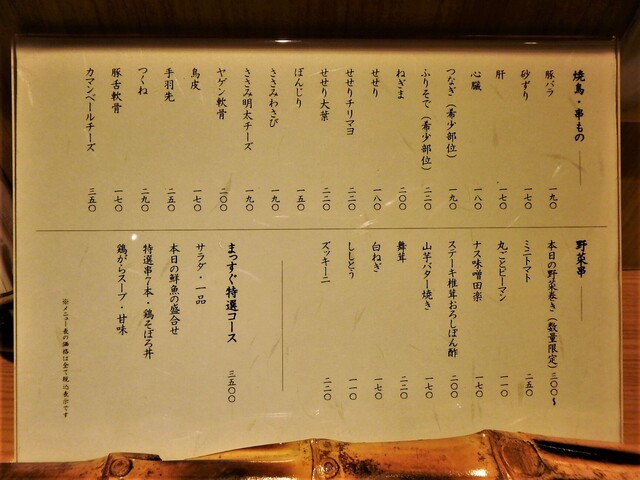 焼鳥・串もの
豚バラ 一九〇
砂ずり 一七〇
肝 一七〇
心臓 一八〇
つなぎ（希少部位） 一九〇
ふりそで（希少部位） 二二〇
ねぎま 二〇〇
せせり 一八〇
せせりチリマヨ 二二〇
せせり大葉 二二〇
ぼんじり 一五〇
ささみわさび 一九〇
ささみ明太チーズ 一九〇
ヤゲン軟骨 二〇〇
鳥皮 一七〇
手羽先 二五〇
つくね 二九〇
豚舌軟骨 一七〇
カマンベールチーズ 三五〇
野菜串
本日の野菜巻き（数量限定）三〇〇〜
ミニトマト 二五〇
丸ごとピーマン 一一〇
ナス味噌田楽 一七〇
ステーキ椎茸おろしぽん酢 二〇〇
山芋バター焼き 一七〇
舞茸 二二〇
白ねぎ 一七〇
ししとう 一一〇
ズッキーニ 二二〇
まっすぐ特選コース 三五〇〇
サラダ・一品
本日の鮮魚の盛合せ
特選串7本・鶏そぼろ丼
鶏がらスープ・甘味
※メニュー表の価格は全て税込表示です